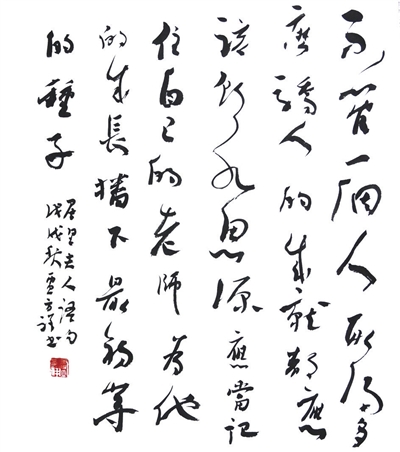 不管一個人取得多
麼驕人的成就都應
該飲水思源應當記
住自己的老師為他
的成長播下最初
的種子
居里夫人語句
戊戌秋